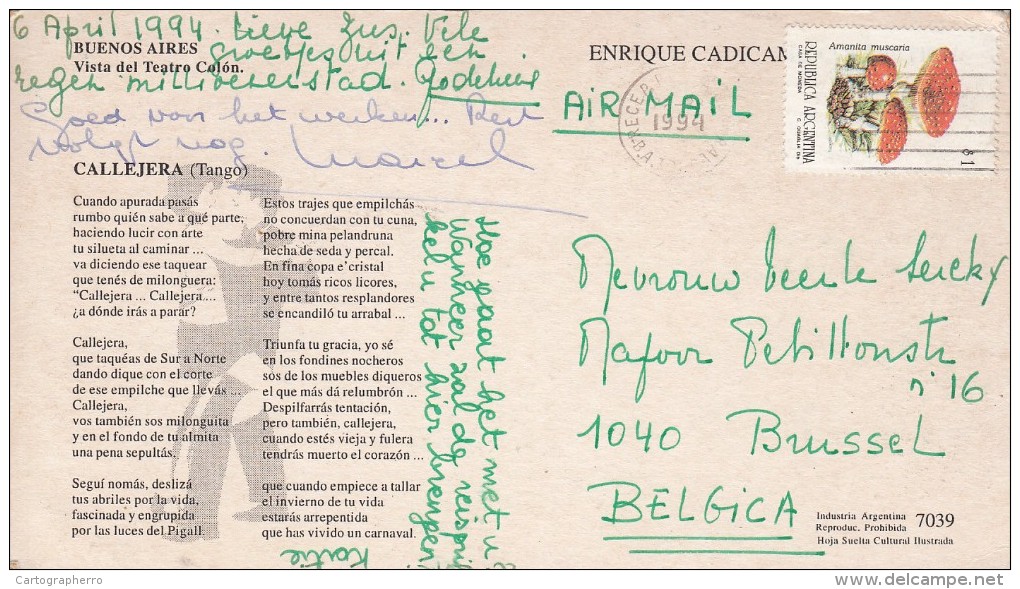 6 April 1994. Lieve Zus. Vele
groetjes uit een
negen millioenenstad. Godelieve
BUENOS AIRES
Vista del Teatro Colón.
Goed voor het werken... Rest
volgt nog. Marcel
ENRIQUE CADICAM
AIR MAIL
RECEP
1994
B.A.
Amanita muscaria
REPUBLICA ARGENTINA
CASA DE MONEDA
$1
CALLEJERA (Tango)
Cuando apurada pasás
rumbo quién sabe a qué parte,
haciendo lucir con arte
tu silueta al caminar ...
va diciendo ese taquear
que tenés de milonguera:
"Callejera ... Callejera....
¿a dónde irás a parar?
Callejera,
que taquéas de Sur a Norte
dando dique con el corte
de ese empilche que llevás ...
Callejera,
vos también sos milonguita
y en el fondo de tu almita
una pena sepultás.
Seguí nomás, deslizá
tus abriles por la vida,
fascinada y engrupida
por las luces del Pigall.
Estos trajes que empilchás
no concuerdan con tu cuna,
pobre mina pelandruna
hecha de seda y percal.
En fina copa e'cristal
hoy tomás ricos licores,
y entre tantos resplandores
se encandiló tu arrabal ...
Triunfa tu gracia, yo sé
en los fondines nocheros
sos de los muebles diqueros
el que más dá relumbrón ...
Despilfarrás tentación,
pero también, callejera,
cuando estés vieja y fulera
tendrás muerto el corazón ...
que cuando empiece a tallar
el invierno de tu vida
estarás arrepentida
que has vivido un carnaval.
Hoe gaat het met u?
Wanneer zal de reis
u tot hier brengen?
Katie
Mevrouw Veerle Serckx
Majoor Petillonstr
n° 16
1040 Brussel
BELGICA
Industria Argentina
Reproduc. Prohibida
Hoja Suelta Cultural Ilustrada
7039
Cartographerro
delcampe.net